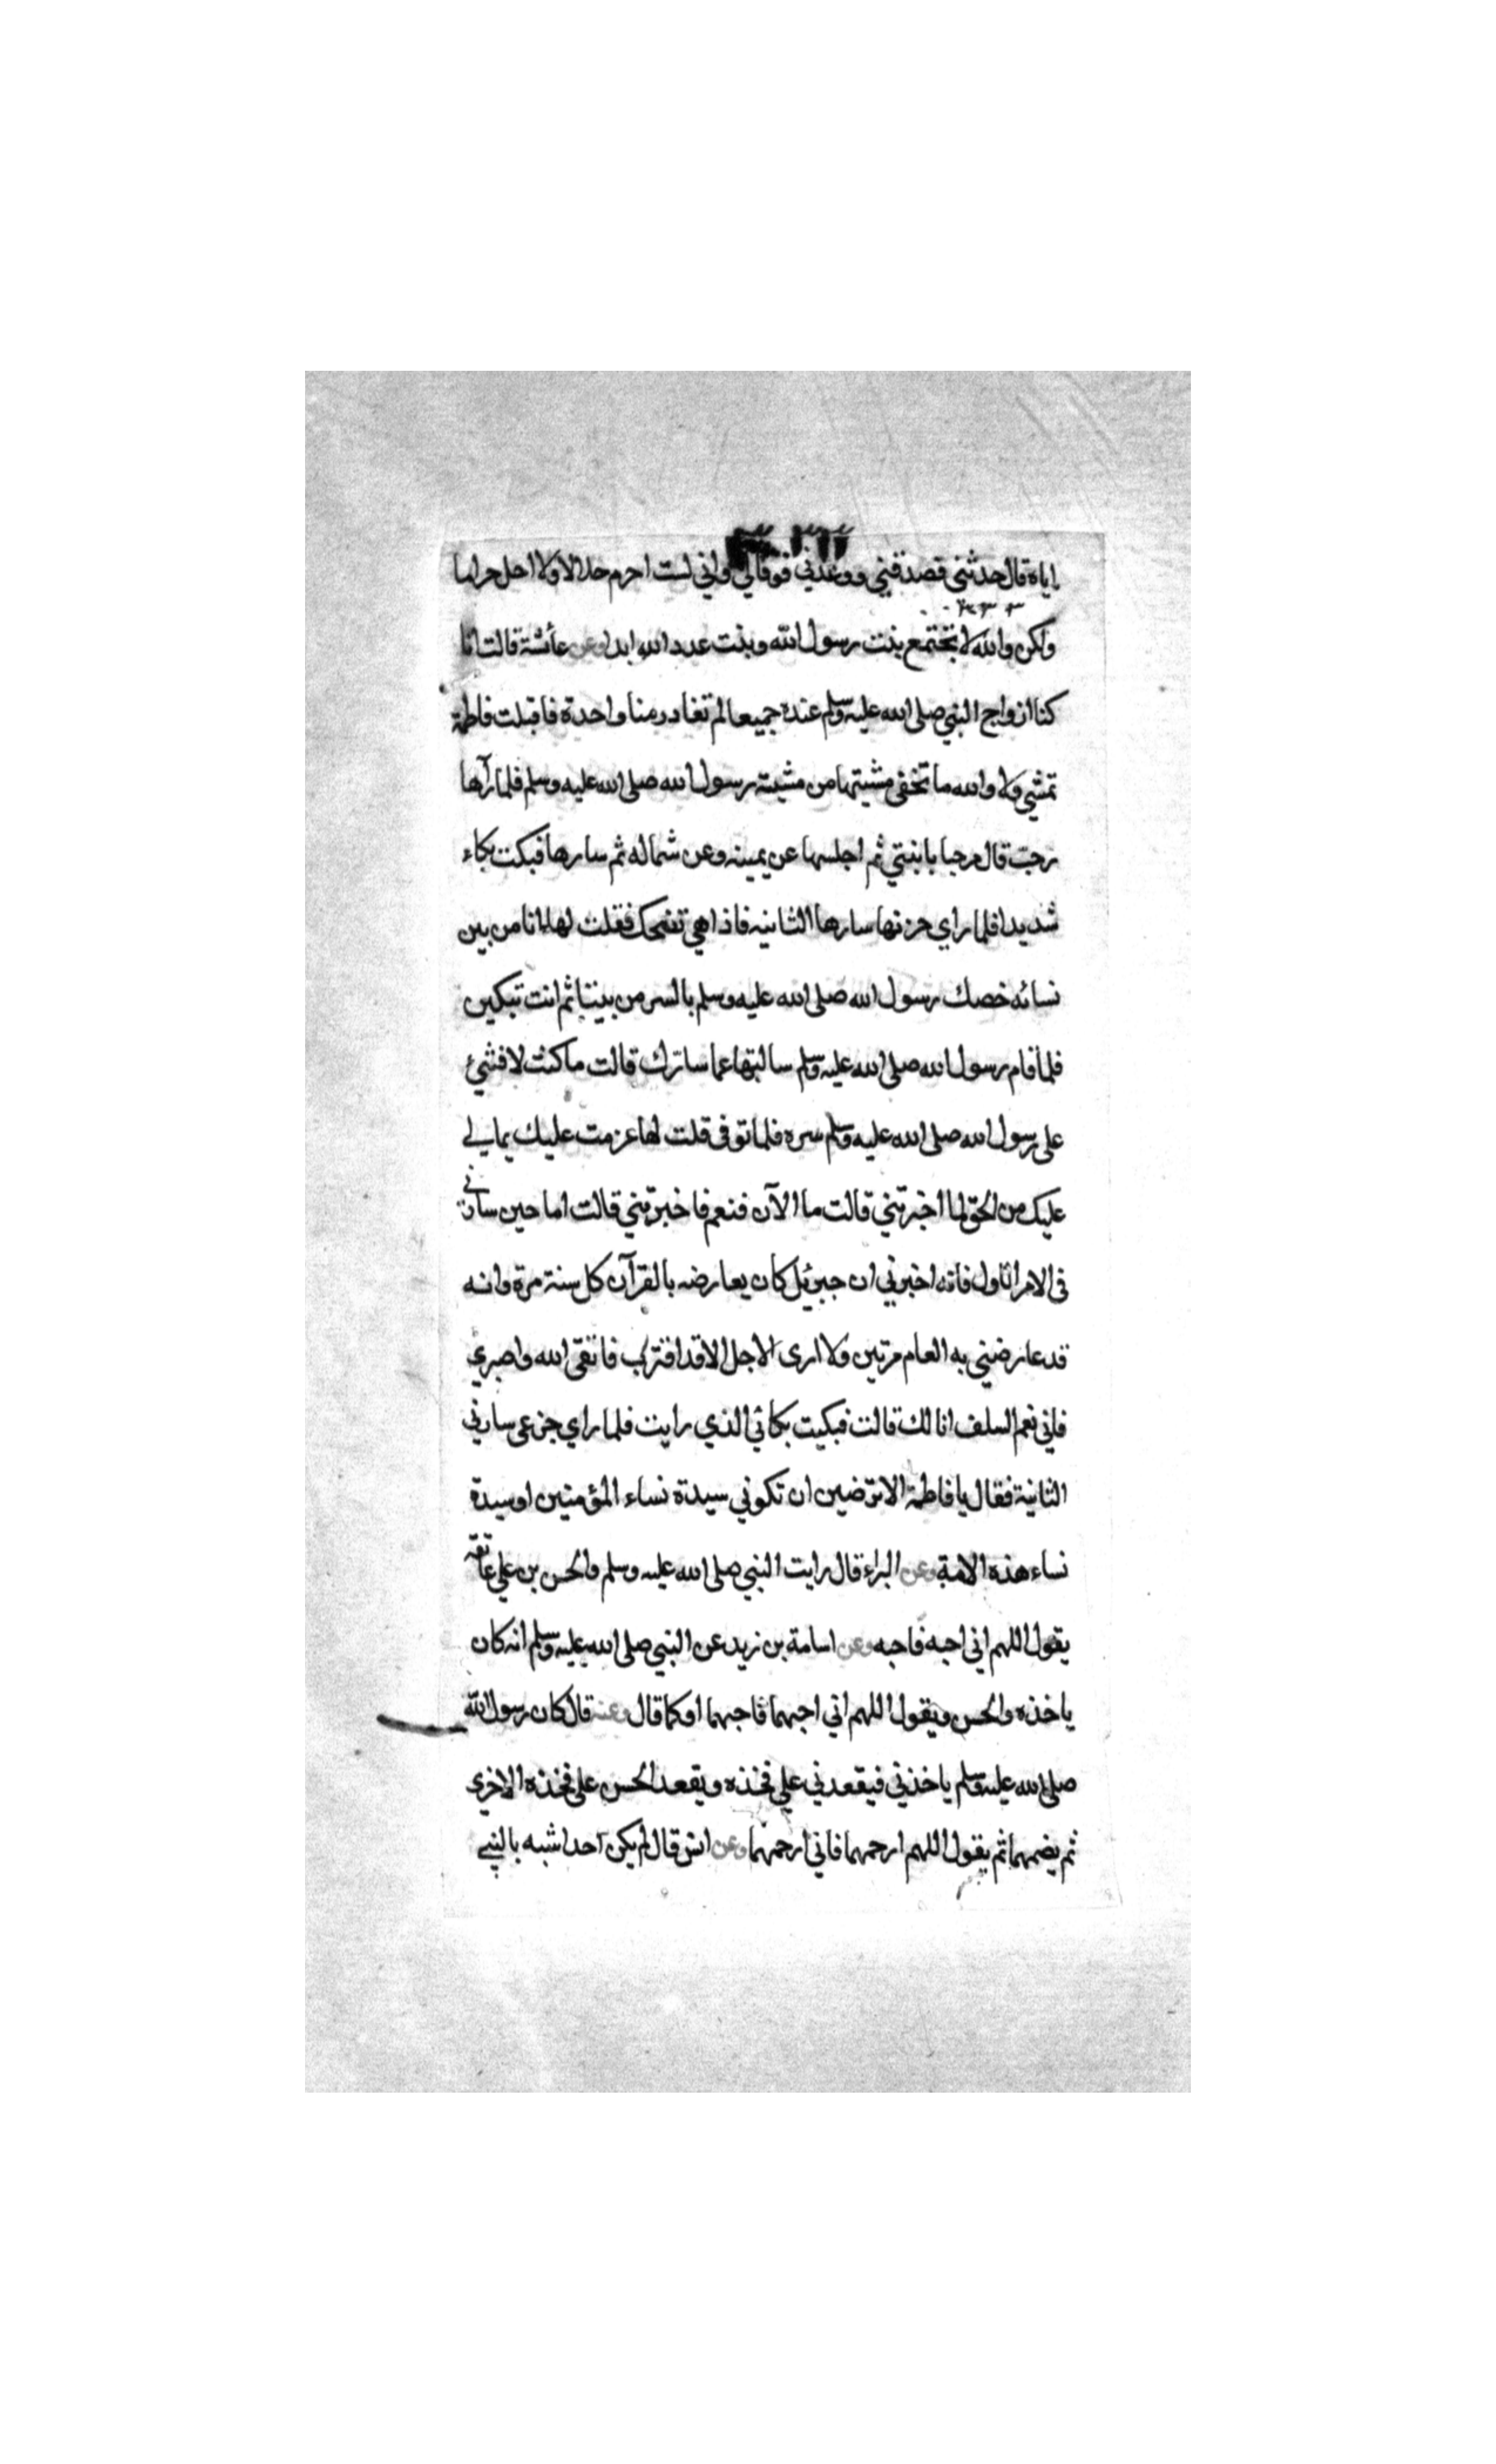 اياه قال حدثني فصدقني ووعدني فوفالي واني لست احرم حلالا ولا احل حراما
ولكن والله لا تجتمع بنت رسول الله وبنت عدو الله ابدا وعن عائشة قالت انا
كنا ازواج النبي صلى الله عليه وسلم عنده جميعا لم تغادر منا واحدة فاقبلت فاطمة
تمشي ولا والله ما تخفى مشيتها من مشية رسول الله صلى الله عليه وسلم فلما رآها
رحب قال مرحبا بابنتي ثم اجلسها عن يمينه وعن شماله ثم سارها فبكت بكاء
شديدا فلما راي حزنها سارها الثانية فاذا هي تضحك فقلت لها انا من بين
نسائه خصك رسول الله صلى الله عليه وسلم بالسر من بيننا ثم انت تبكين
فلما قام رسول الله صلى الله عليه وسلم سالتها عما سارك قالت ما كنت لافشئ
على رسول الله صلى الله عليه وسلم سره فلما توفى قلت لها عزمت عليك بما لي
عليك من الحق لما اخبرتني قالت ما الآن فنعم فاخبرتني قالت اما حين سارني
في الامر الاول فانه اخبرني ان جبرئيل كان يعارضه بالقرآن كل سنة مرة وانه
قد عارضني به العام مرتين ولا ارى الاجل الا قد اقترب فاتقى الله واصبري
فاني نعم السلف انا لك قالت فبكيت بكائي الذي رايت فلما راي جزعى سارني
الثانية فقال يا فاطمة الا ترضين ان تكوني سيدة نساء المؤمنين او سيدة
نساء هذه الامة وعن البراء قال رايت النبي صلى الله عليه وسلم والحسن بن علي عاتقه
يقول اللهم اني احبه فاحبه وعن اسامة بن زيد عن النبي صلى الله عليه وسلم انه كان
ياخذه والحسن ويقول اللهم اني احبهما فاحبهما او كما قال وعنه قال كان رسول الله
صلى الله عليه وسلم ياخذني فيقعدني علي فخذه ويقعد الحسن على فخذه الاخري
ثم يضمهما ثم يقول اللهم ارحمهما فاني ارحمهما وعن انس قال لم يكن احد اشبه بالنبي